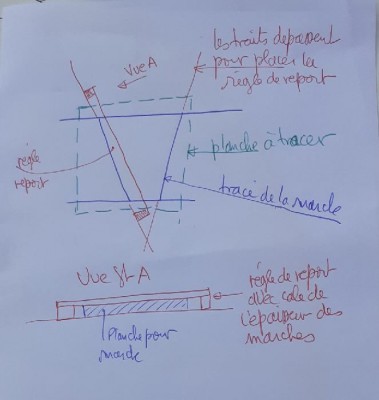 les traits dépassent
pour placer la
règle de report
Vue A
planche à tracer
règle
report
tracé de la marche
Vue St A
règle de report
avec cale de
l'épaisseur des
marches
planche pour
marche